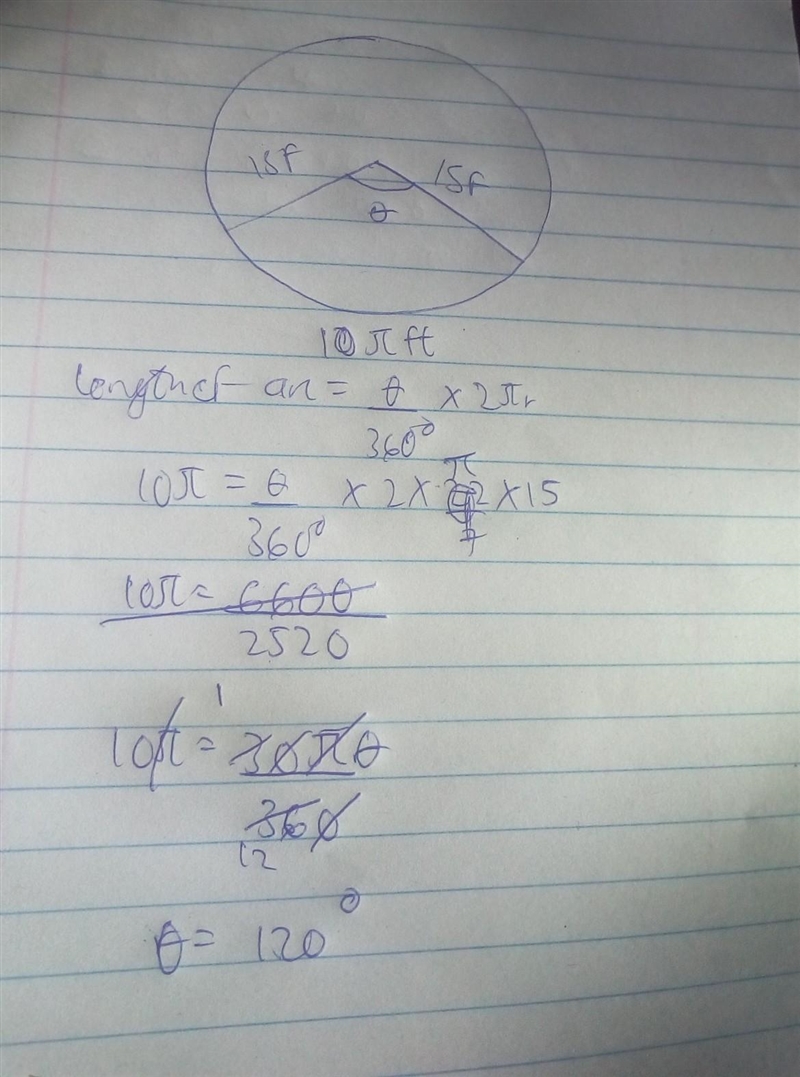 15F 15F
θ
10πft
length of arc = θ/360° × 2πr
10π = θ/360° × 2 × π × 15
10π = 6600/2520
10π = 30πθ/360
1
12
θ = 120°